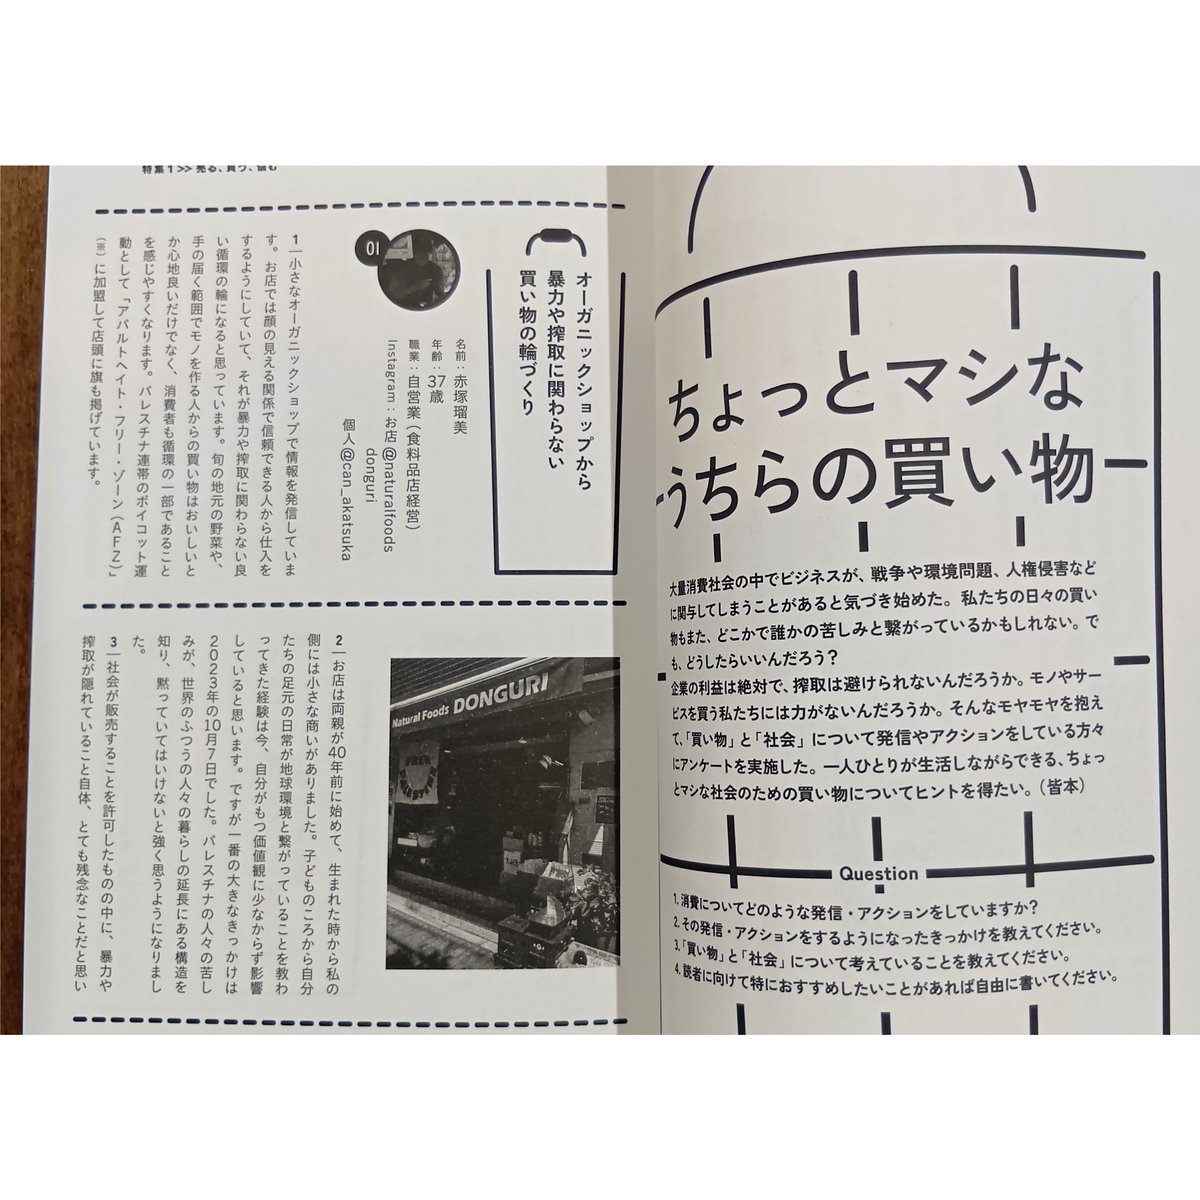 ちょっとマシな
うちらの買い物
大量消費社会の中でビジネスが、戦争や環境問題、人権侵害など
に関与してしまうことがあると気づき始めた。私たちの日々の買い
物もまた、どこかで誰かの苦しみと繋がっているかもしれない。で
も、どうしたらいいんだろう？
企業の利益は絶対で、搾取は避けられないんだろうか。モノやサー
ビスを買う私たちには力がないんだろうか。そんなモヤモヤを抱え
て、「買い物」と「社会」について発信やアクションをしている方々
にアンケートを実施した。一人ひとりが生活しながらできる、ちょっ
とマシな社会のための買い物についてヒントを得たい。（皆本）
Question
1. 消費についてどのような発信・アクションをしていますか？
2. その発信・アクションをするようになったきっかけを教えてください。
3.「買い物」と「社会」について考えていることを教えてください。
4. 読者に向けて特におすすめしたいことがあれば自由に書いてください。
特集1>> 売る、買う、悩む
オーガニックショップから
暴力や搾取に関わらない
買い物の輪づくり
01
名前：赤塚瑠美
年齢：37歳
職業：自営業（食料品店経営）
Instagram：お店@naturalfoods
donguri
個人@can_akatsuka
1｜小さなオーガニックショップで情報を発信していま
す。お店では顔の見える関係で信頼できる人から仕入を
するようにしていて、それが暴力や搾取に関わらない良
い循環の輪になると思っています。旬の地元の野菜や、
手の届く範囲でモノを作る人からの買い物はおいしいと
か心地良いだけでなく、消費者も循環の一部であること
を感じやすくなります。パレスチナ連帯のボイコット運
動として「アパルトヘイト・フリー・ゾーン（AFZ）」
（※）に加盟して店頭に旗も掲げています。
Natural Foods DONGURI
FREE
PALESTINE
2｜お店は両親が40年前に始めて、生まれた時から私の
側には小さな商いがありました。子どものころから自分
たちの足元の日常が地球環境と繋がっていることを教わ
ってきた経験は今、自分がもつ価値観に少なからず影響
していると思います。ですが一番の大きなきっかけは
2023年の10月7日でした。パレスチナの人々の苦し
みが、世界のふつうの人々の暮らしの延長にある構造を
知り、黙っていてはいけないと強く思うようになりまし
た。
3｜社会が販売することを許可したものの中に、暴力や
搾取が隠れていること自体、とても残念なことだと思い